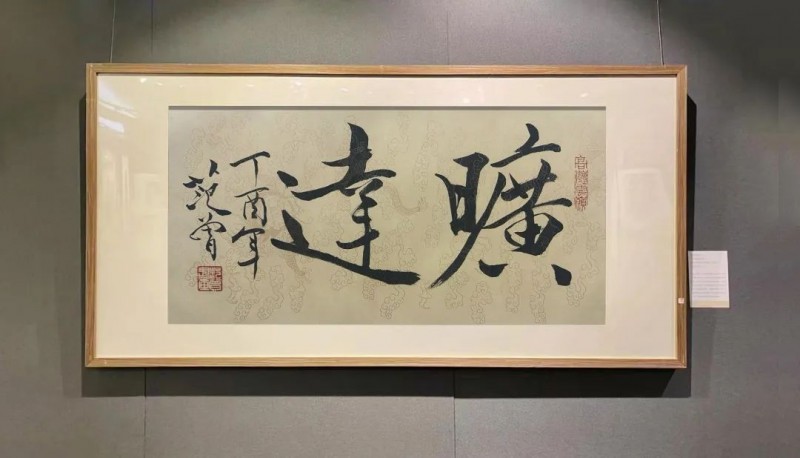 曠達
丁酉年
范曾